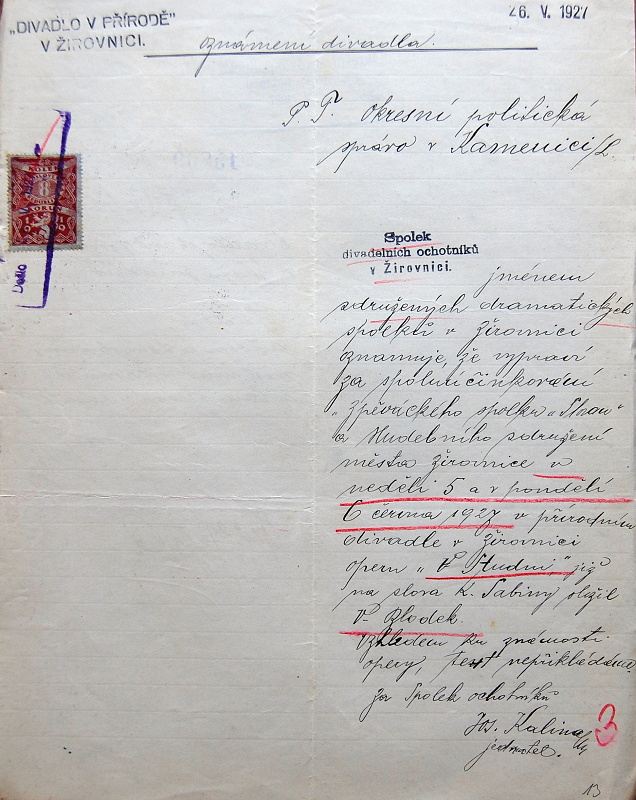 „DIVADLO V PŘÍRODĚ"
V ŽIROVNICI.
26. V. 1927
oznámení divadla.
P. T. Okresní politická
správo v Kamenici/L.
8
KORUN
Spolek
divadelních ochotníků
v Žirovnici.
jménem
sdružených dramatických
spolků v Žirovnici
oznamuje, že vypraví
za spoluúčinkování
"Zpěváckého spolku
a Hudebního sdružení
města Žirovnice v
neděli 5 a v pondělí
6 června 1927 v přírodním
divadle v Žirovnici
operu „V Studni," již
na slova K. Sabiny složil
V. Blodek.
Vzhledem ku známosti
opery, text nepřikládáme.
za Spolek ochotníků
Jos. Kalina
jednatel.
3
13